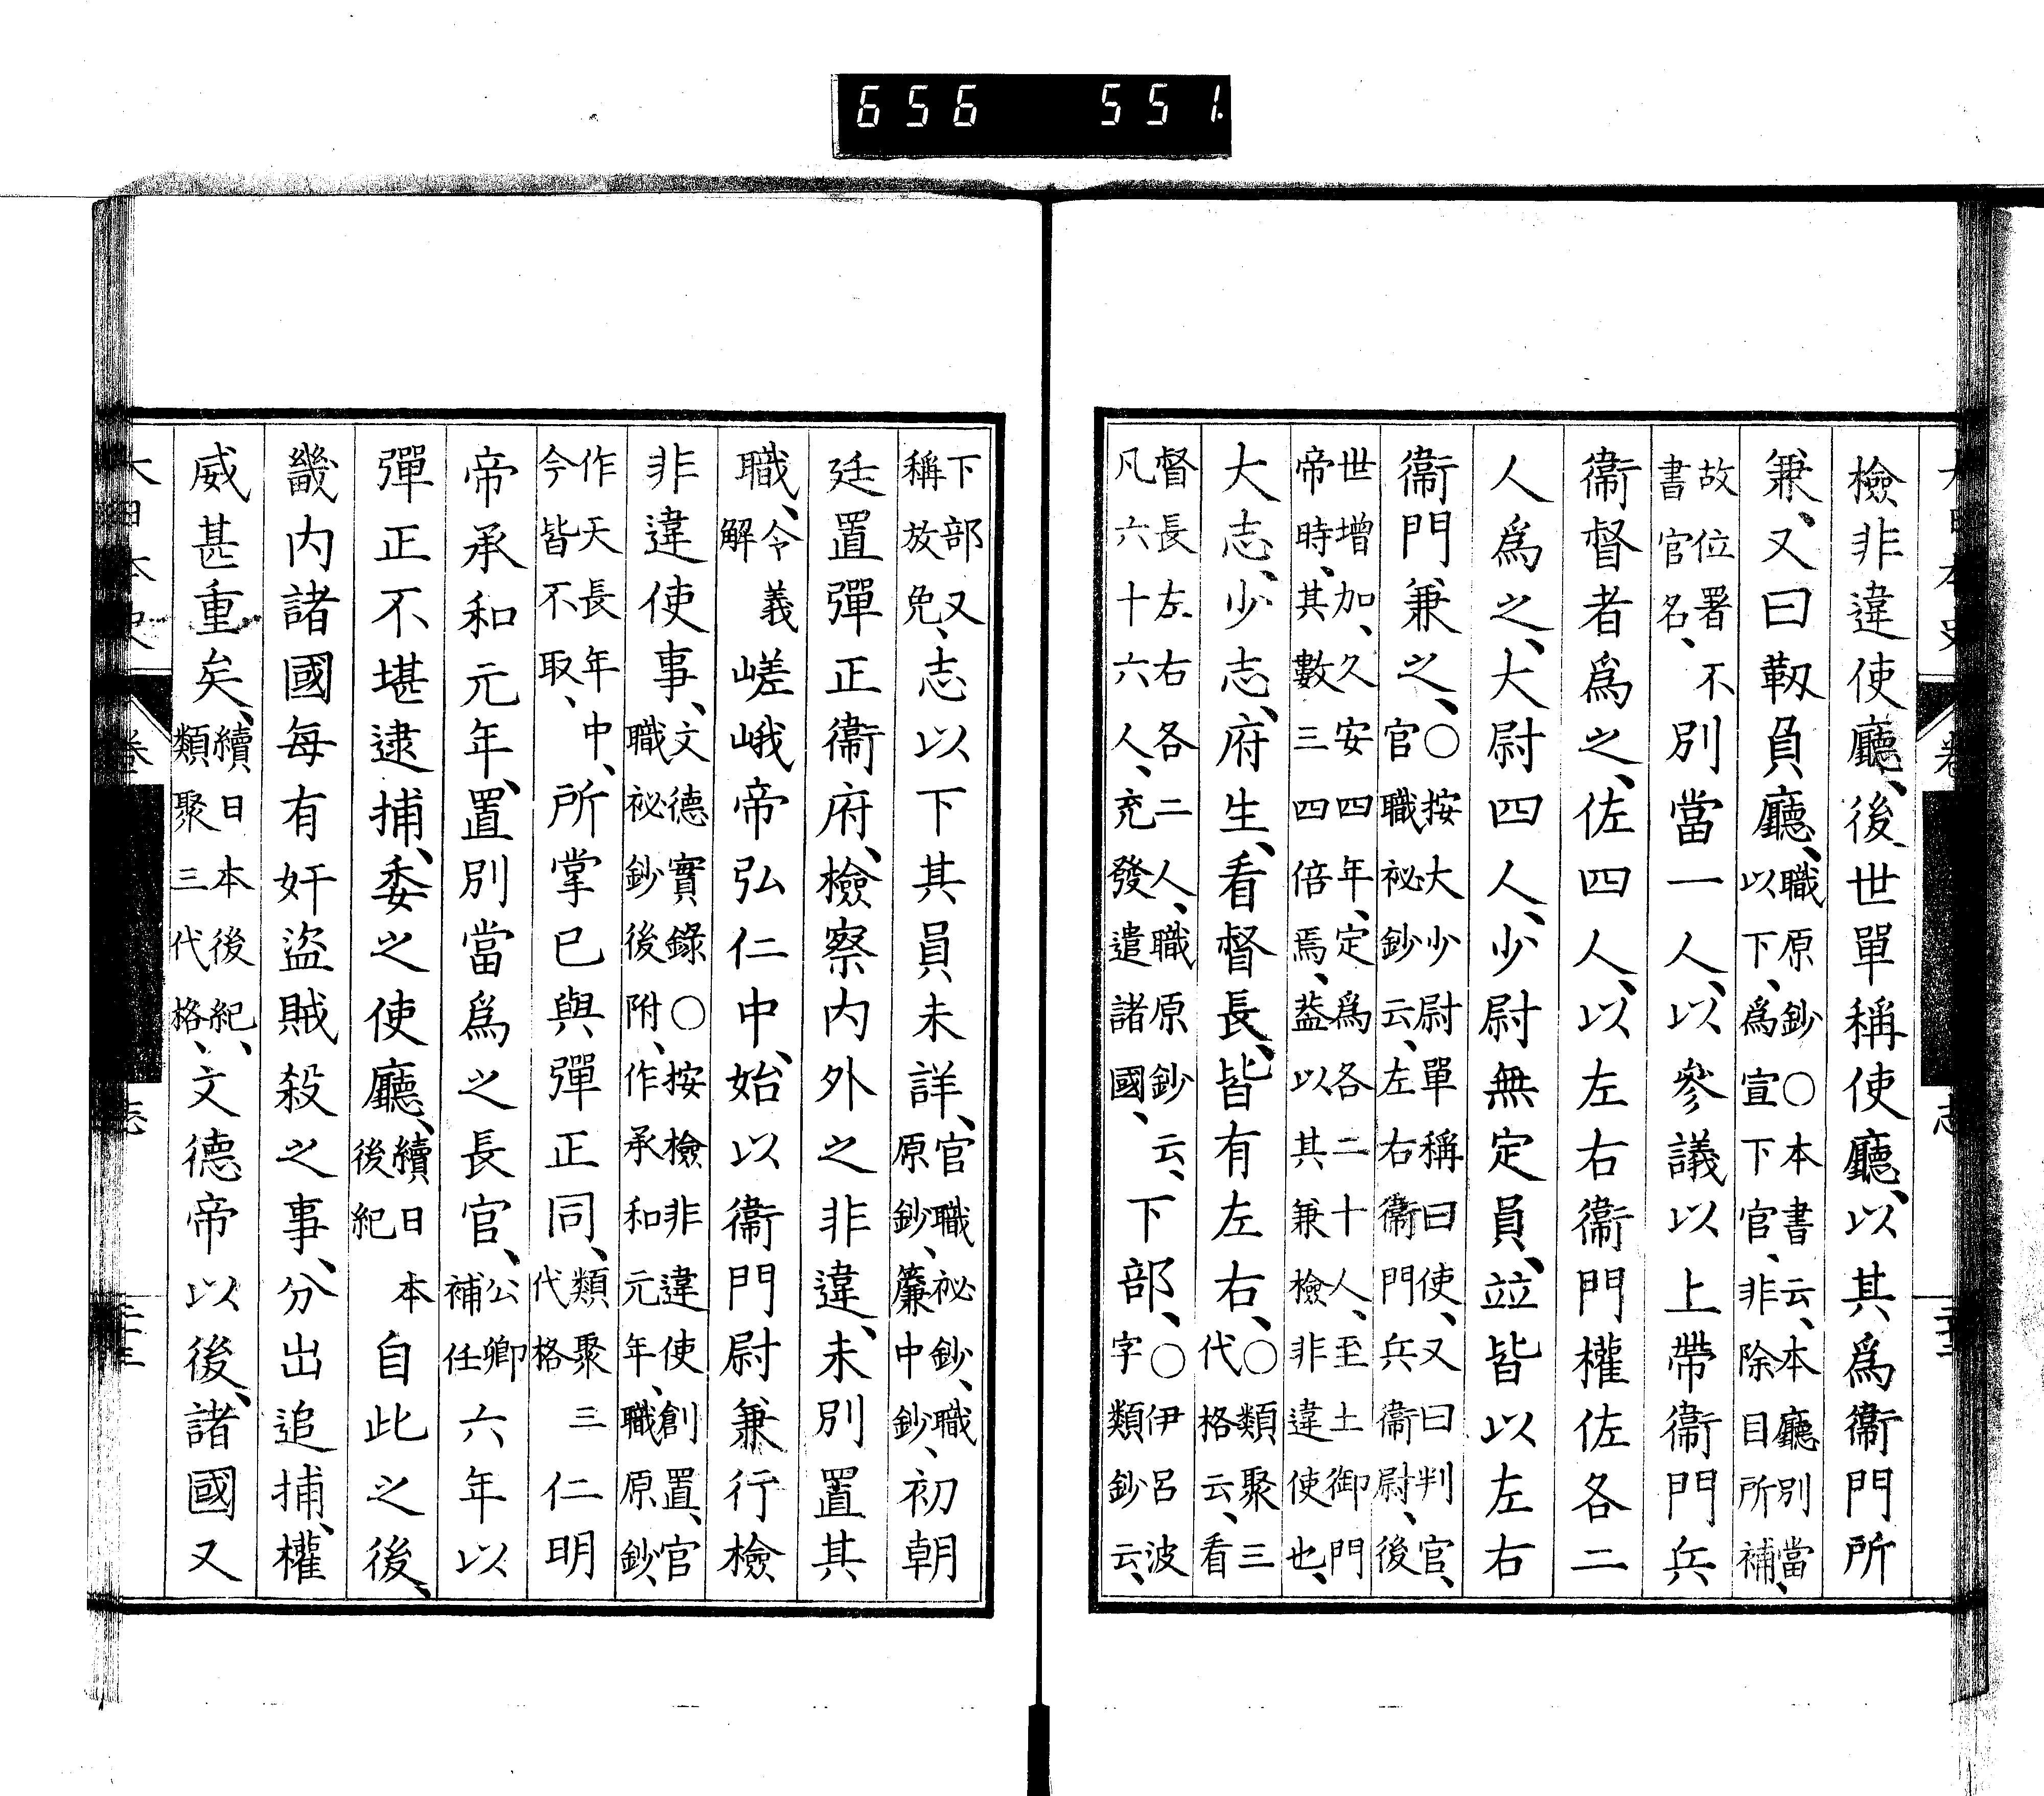 656 551.
檢非違使廳、後世單稱使廳、以其爲衞門所
兼、又曰靱負廳、職原鈔○本書云、本廳別當以下、爲宣下官、非除目所補、
故位署不書官名、別當一人、以參議以上帶衞門兵
衞督者爲之、佐四人、以左右衞門權佐各二
人爲之、大尉四人、少尉無定員、竝皆以左右
衞門兼之、○按大少尉單稱曰使、又曰判官、官職祕鈔云、左右衞門兵衞尉、後
世增加、久安四年、定爲各二十人、至土御門帝時、其數三四倍焉、葢以其兼檢非違使也、
大志、少志、府生、看督長、皆有左右、○類聚三代格云、看
督長左右各二人、職原鈔云、凡六十六人、充發遣諸國、下部、○伊呂波字類鈔云、
下部又稱放免、志以下其員未詳、官職祕鈔、職原鈔、簾中鈔、初朝
廷置彈正衞府、檢察內外之非違、未別置其
職、令義解嵯峨帝弘仁中、始以衞門尉兼行檢
非違使事、文德實錄○按檢非違使創置、官職祕鈔後附、作承和元年、職原鈔、
作天長年中、今皆不取、所掌已與彈正同、類聚三代格仁明
帝承和元年、置別當爲之長官、公卿補任六年以
彈正不堪逮捕、委之使廳、續日本後紀自此之後、
畿內諸國每有奸盜賊殺之事、分出追捕、權
威甚重矣、續日本後紀、類聚三代格、文德帝以後、諸國又